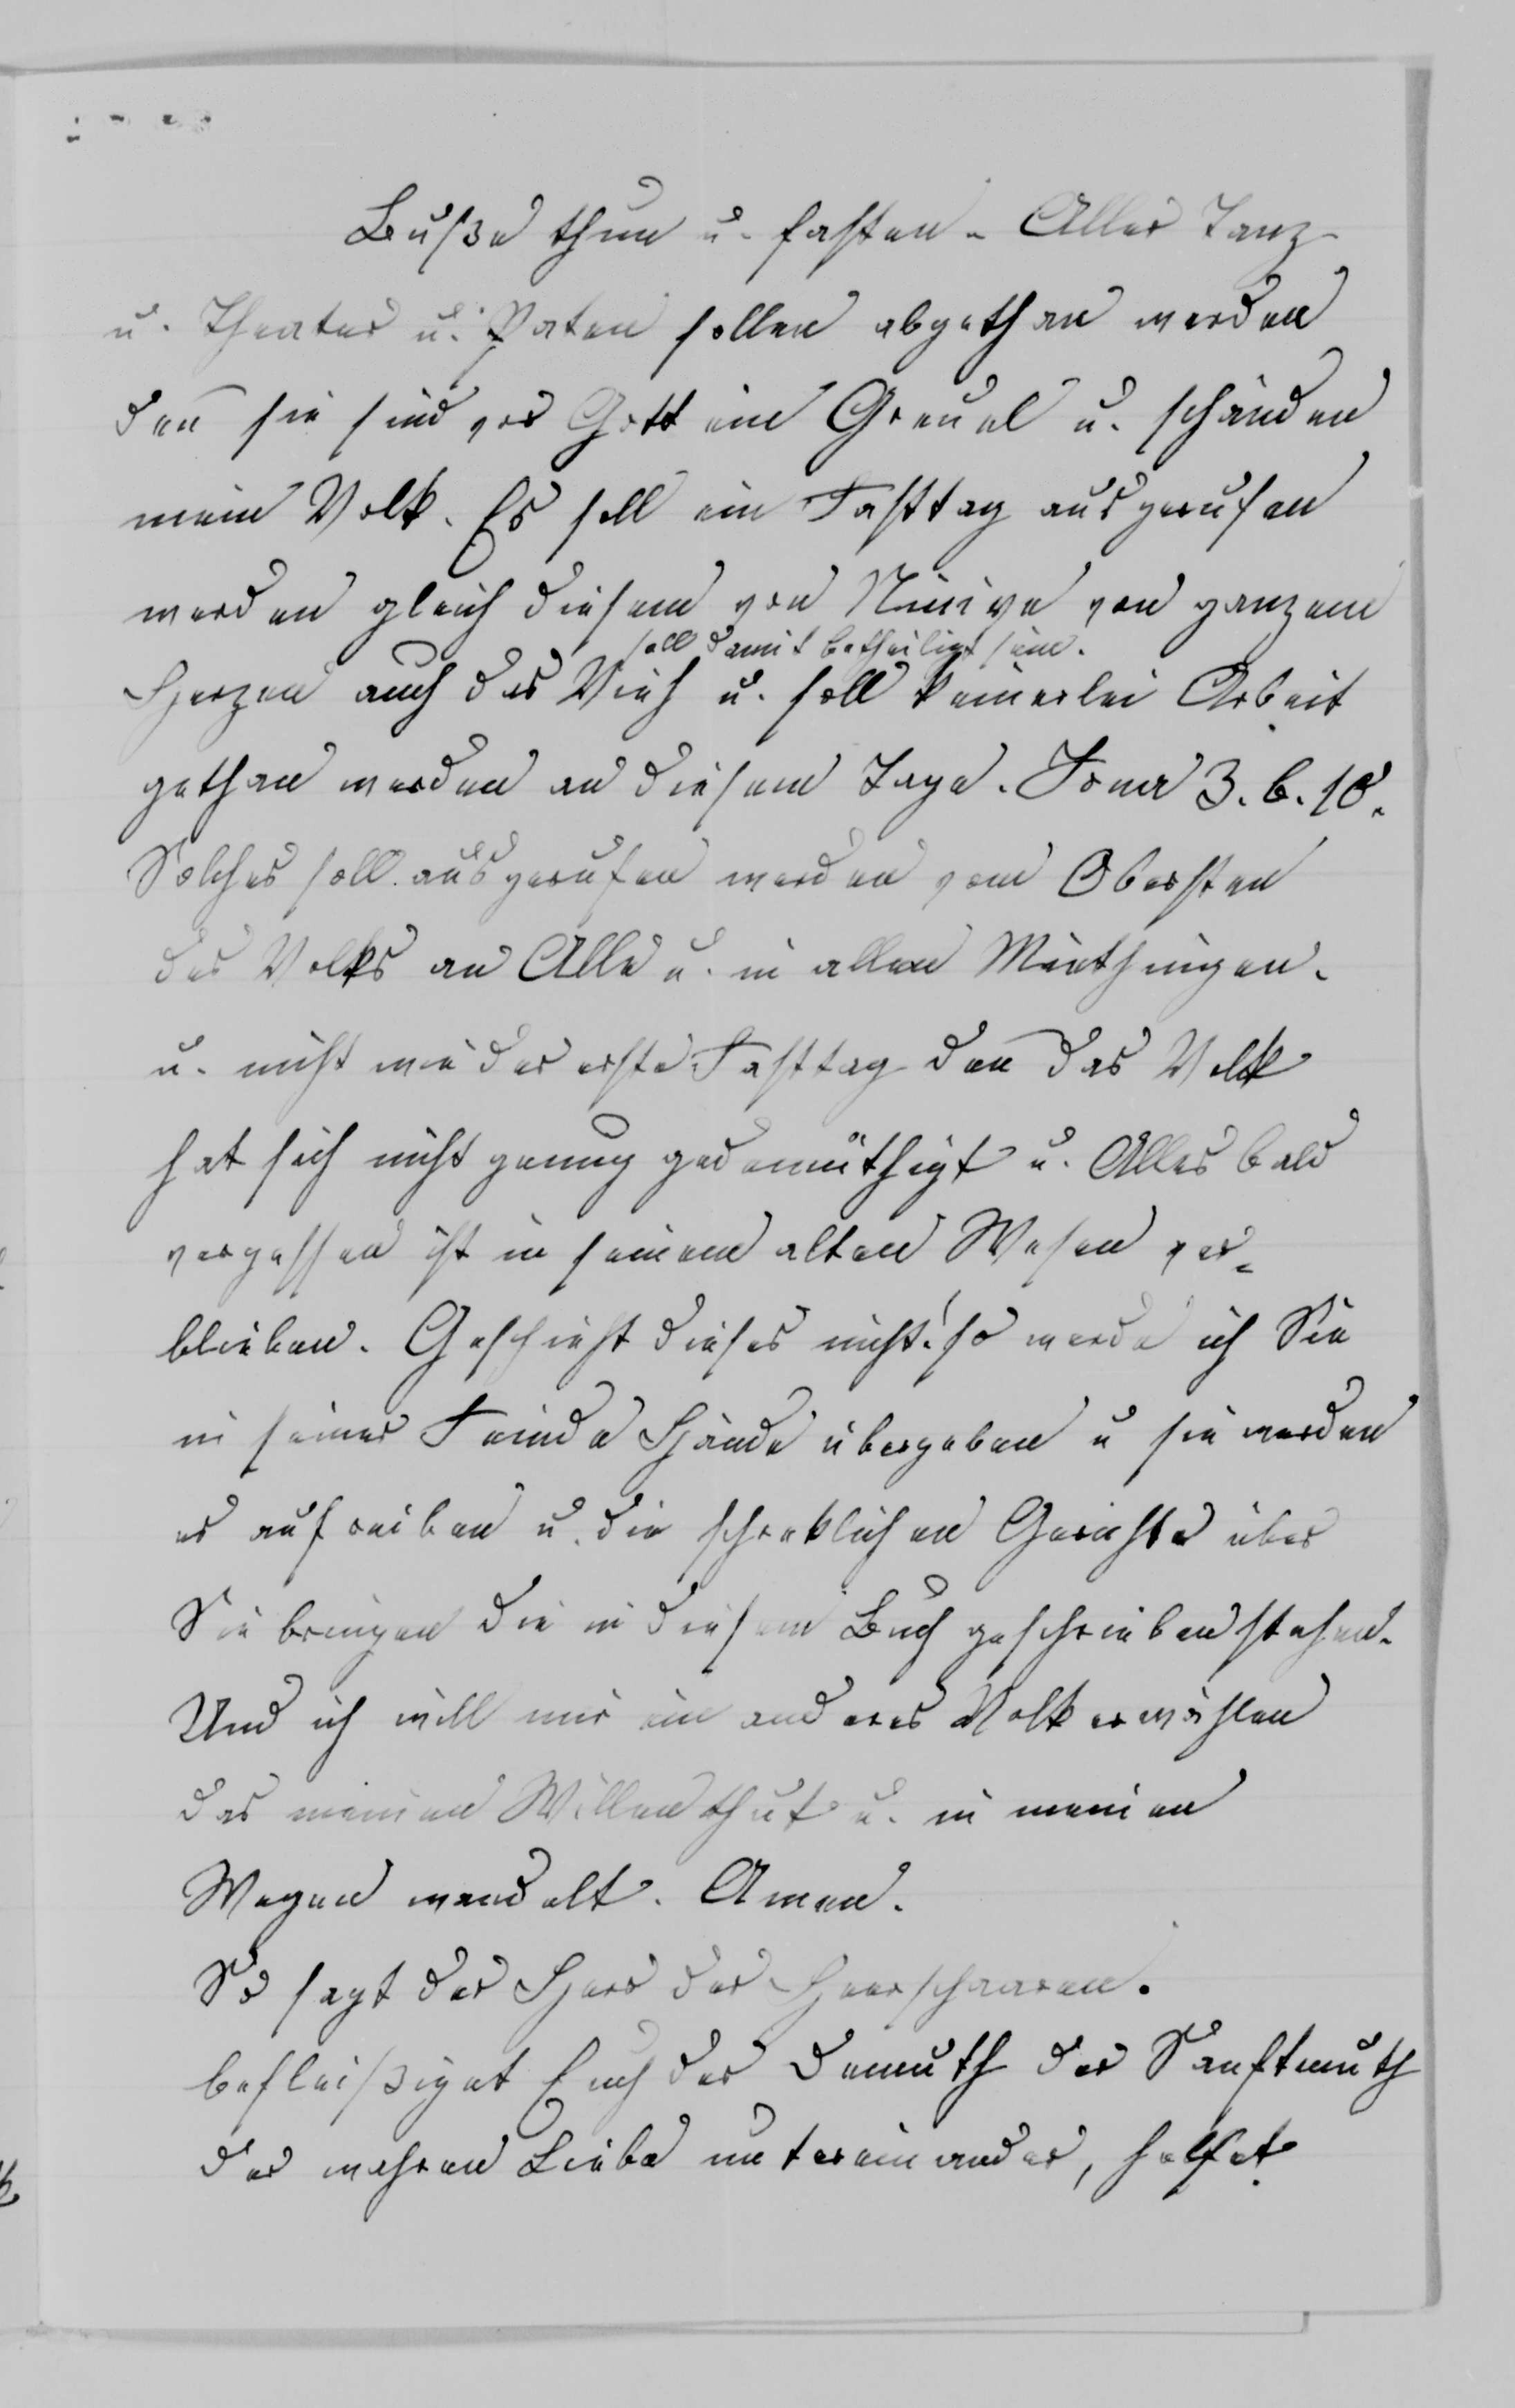 Buße thun u. fasten. Aller Tanz
u. Theater u. Paten sollen abgethan werden
den̄ sie sind vor Gott ein Greuel u. schänden
mein Volk. Es soll ein Fasttag ausgerufen
werden gleich diesem von Ninive von ganzem
soll damit betheiligt sein.
Herzen auch das Vieh u. soll keinerlei Arbeit
gethan werden an diesem Tage. Jona 3. 6. 10.
Solches soll ausgerufen werden vom Obersten
des Volks an Alle u. in allen Miethingen.
u. nicht wie der erste Fasttag den̄ das Volk
hat sich nicht genug gedemüthigt u. Alles bald
vergessen ist in seinem alten Wesen ver-
blieben. Geschieht dieses nicht! so werde ich Sie
in seiner Feinde Hände übergeben u sie werden
es aufreiben u. die schreklichen Gerichte über
Sie bringen die in diesem Buch geschrieben stehen.
Und ich will mir ein anderes Volk erwählen
das meinen Willen thut u. in meinen
Wegen wandelt. Amen.
So sagt der Herr der Heerschaaren.
befleißiget Euch der Demuth der Sanftmuth
der wahren Liebe untereinander, helfet